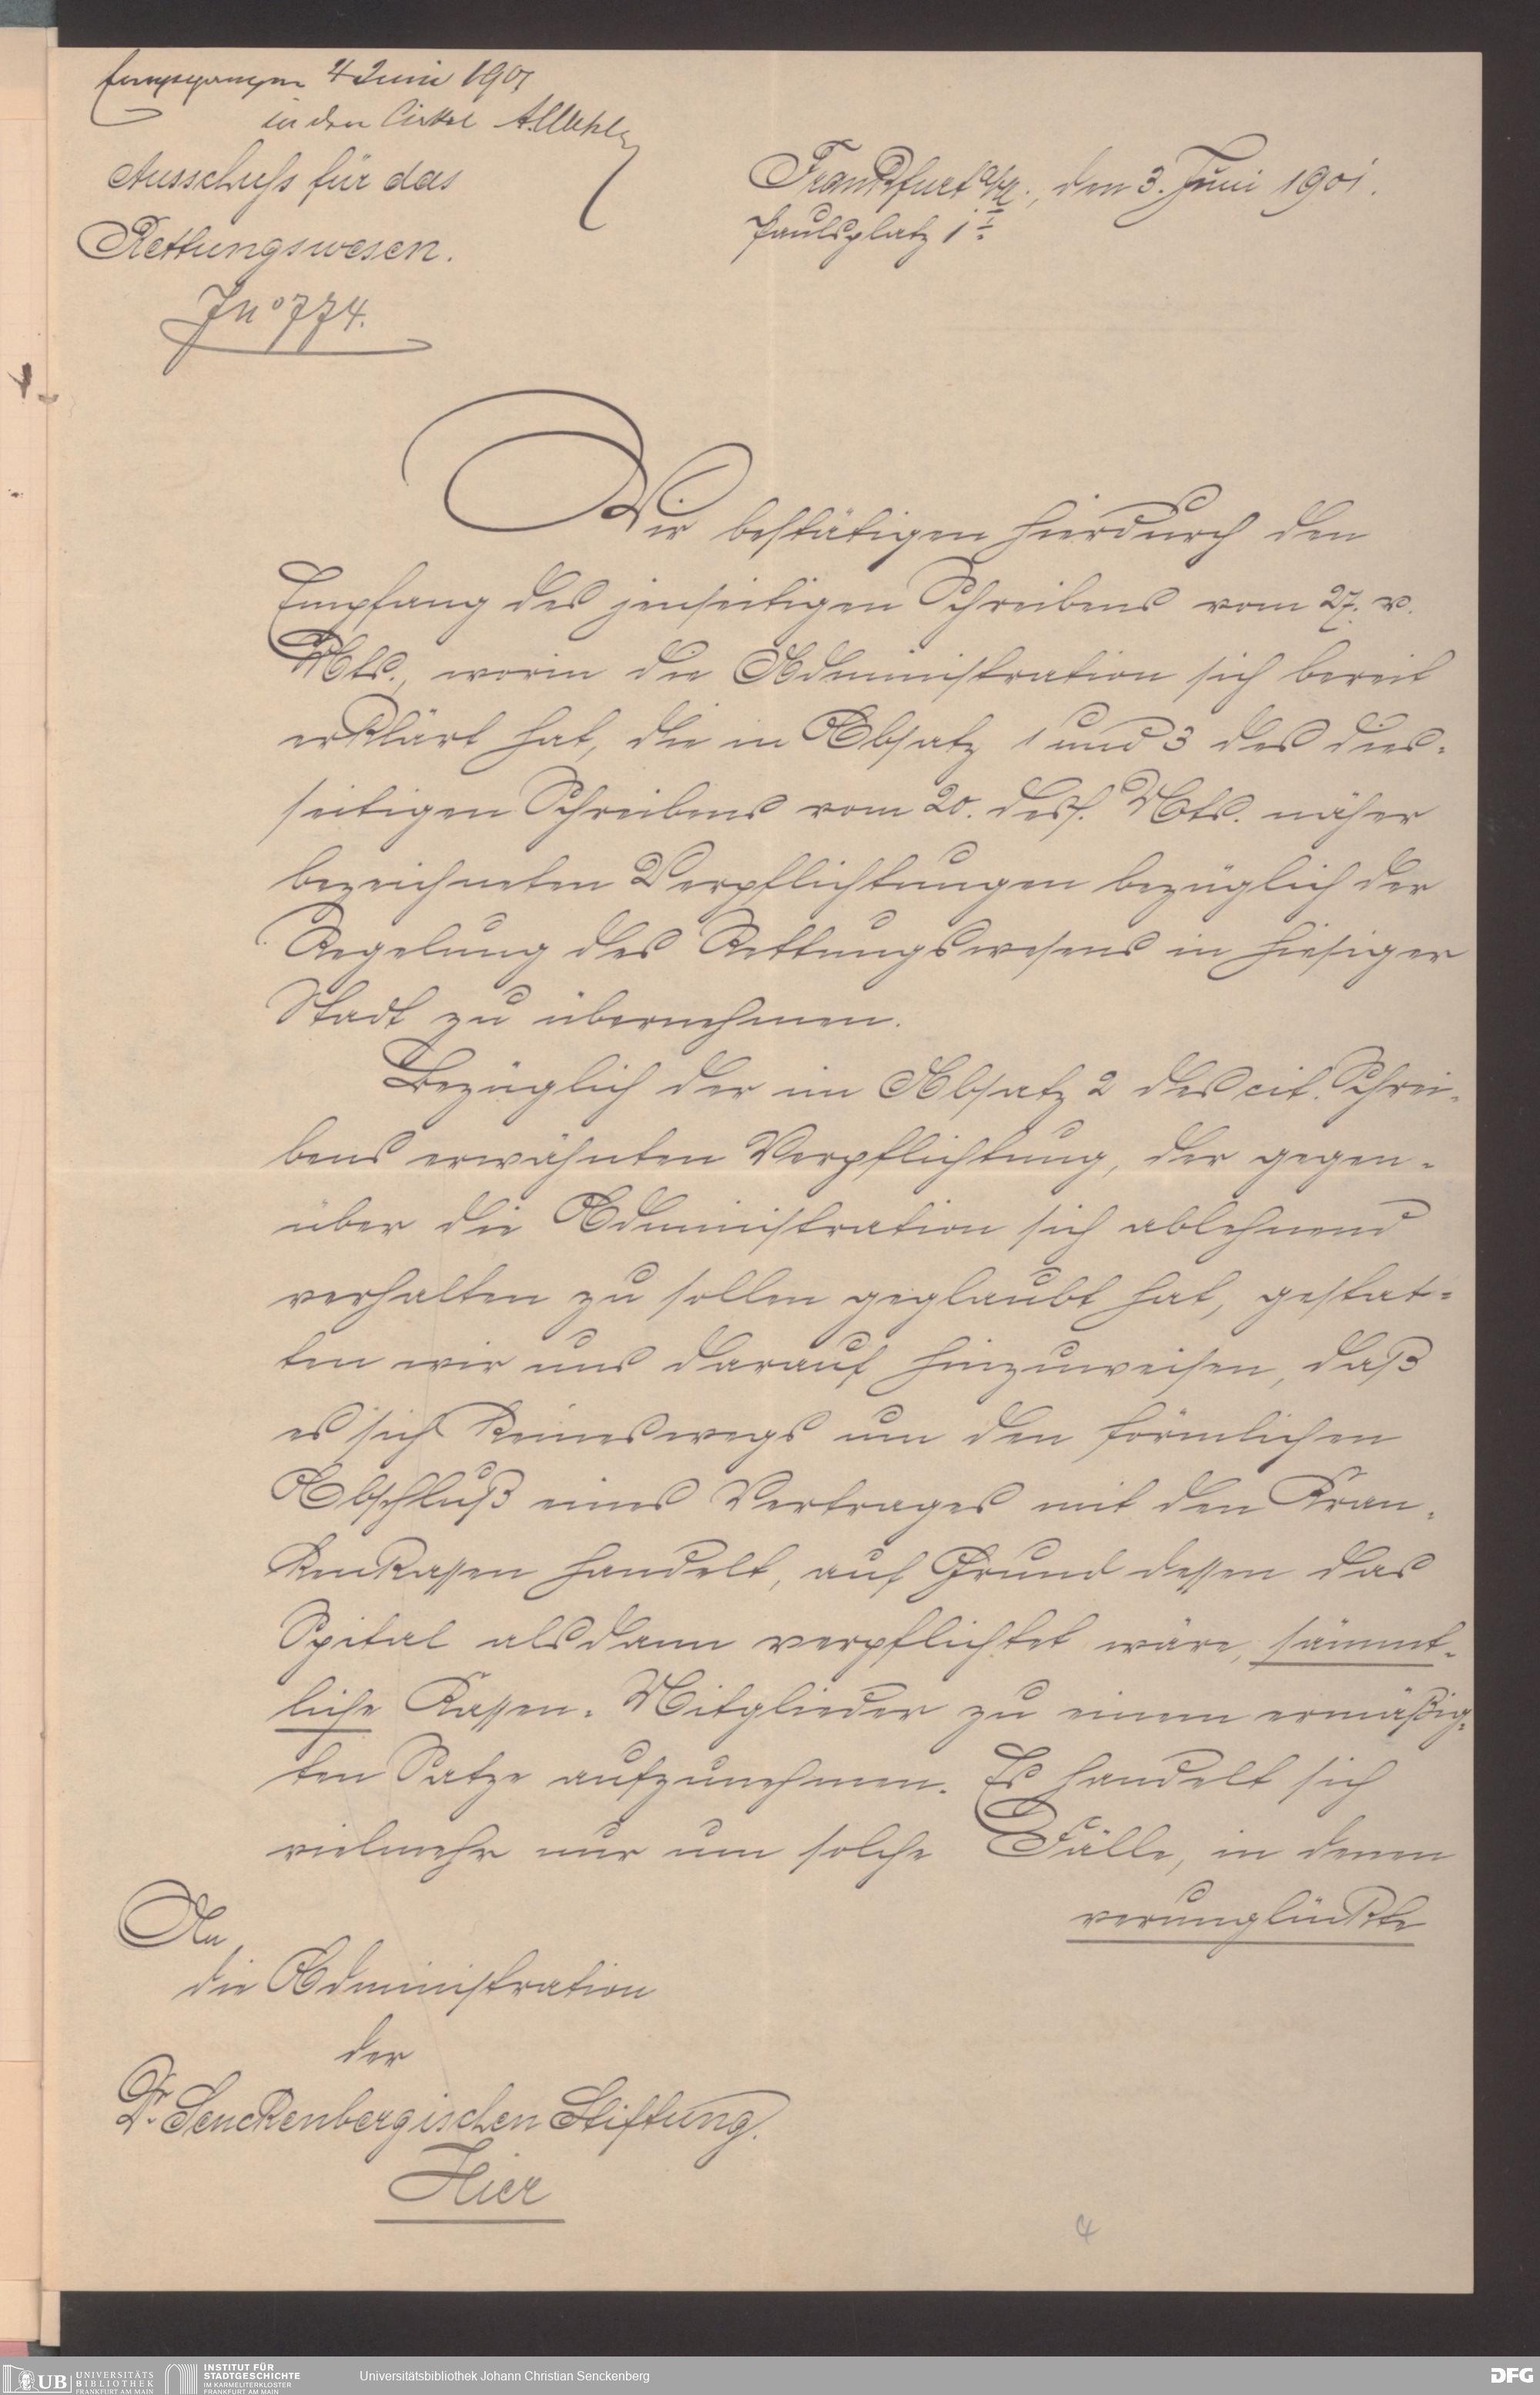 Empfangen 4 Juni 1901
in den Cirkel
Ausschuss für das
Rettungswesen.
J No 774.
Frankfurt a/M., den 3. Juni 1901.
Paulsplatz 1 I.
Wir bestätigen hierdurch den
Empfang des jenseitigen Schreibens vom 27. v.
Mts., worin die Administration sich bereit
erklärt hat, die in Absatz 1 und 3 des dies-
seitigen Schreibens vom 20. dess. Mts. näher
bezeichneten Verpflichtungen bezüglich der
Regelung des Rettungswesens in hiesiger
Stadt zu übernehmen.
Bezüglich der im Absatz 2 des cit. Schrei-
bens erwähnten Verpflichtung, der gegen-
über die Administration sich ablehnend
verhalten zu sollen geglaubt hat, gestat-
ten wir uns darauf hinzuweisen, daß
es sich keineswegs um den förmlichen
Abschluß eines Vertrages mit den Kran-
kenkassen handelt, auf Grund dessen das
Spital alsdann verpflichtet wäre, sämmt-
liche Kassen-Mitglieder zu einem ermäßig-
ten Satze aufzunehmen. Es handelt sich
vielmehr nur um solche Fälle, in denen
verunglückte
An
die Administration
der
Dr. Senckenbergischen Stiftung.
Hier
4
UB UNIVERSITÄTS
BIBLIOTHEK
FRANKFURT AM MAIN
INSTITUT FÜR
STADTGESCHICHTE
IM KARMELITERKLOSTER
FRANKFURT AM MAIN
Universitätsbibliothek Johann Christian Senckenberg
DFG